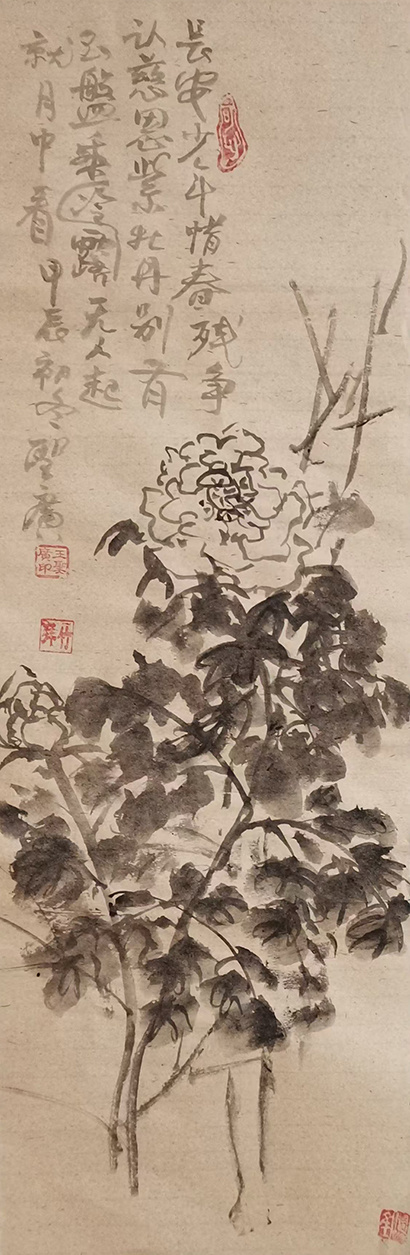 長安少年惜春残争
认慈恩紫牡丹别有
玉盤乘冷露无人起
就月中看 甲辰初冬 聖廣
王聖廣印